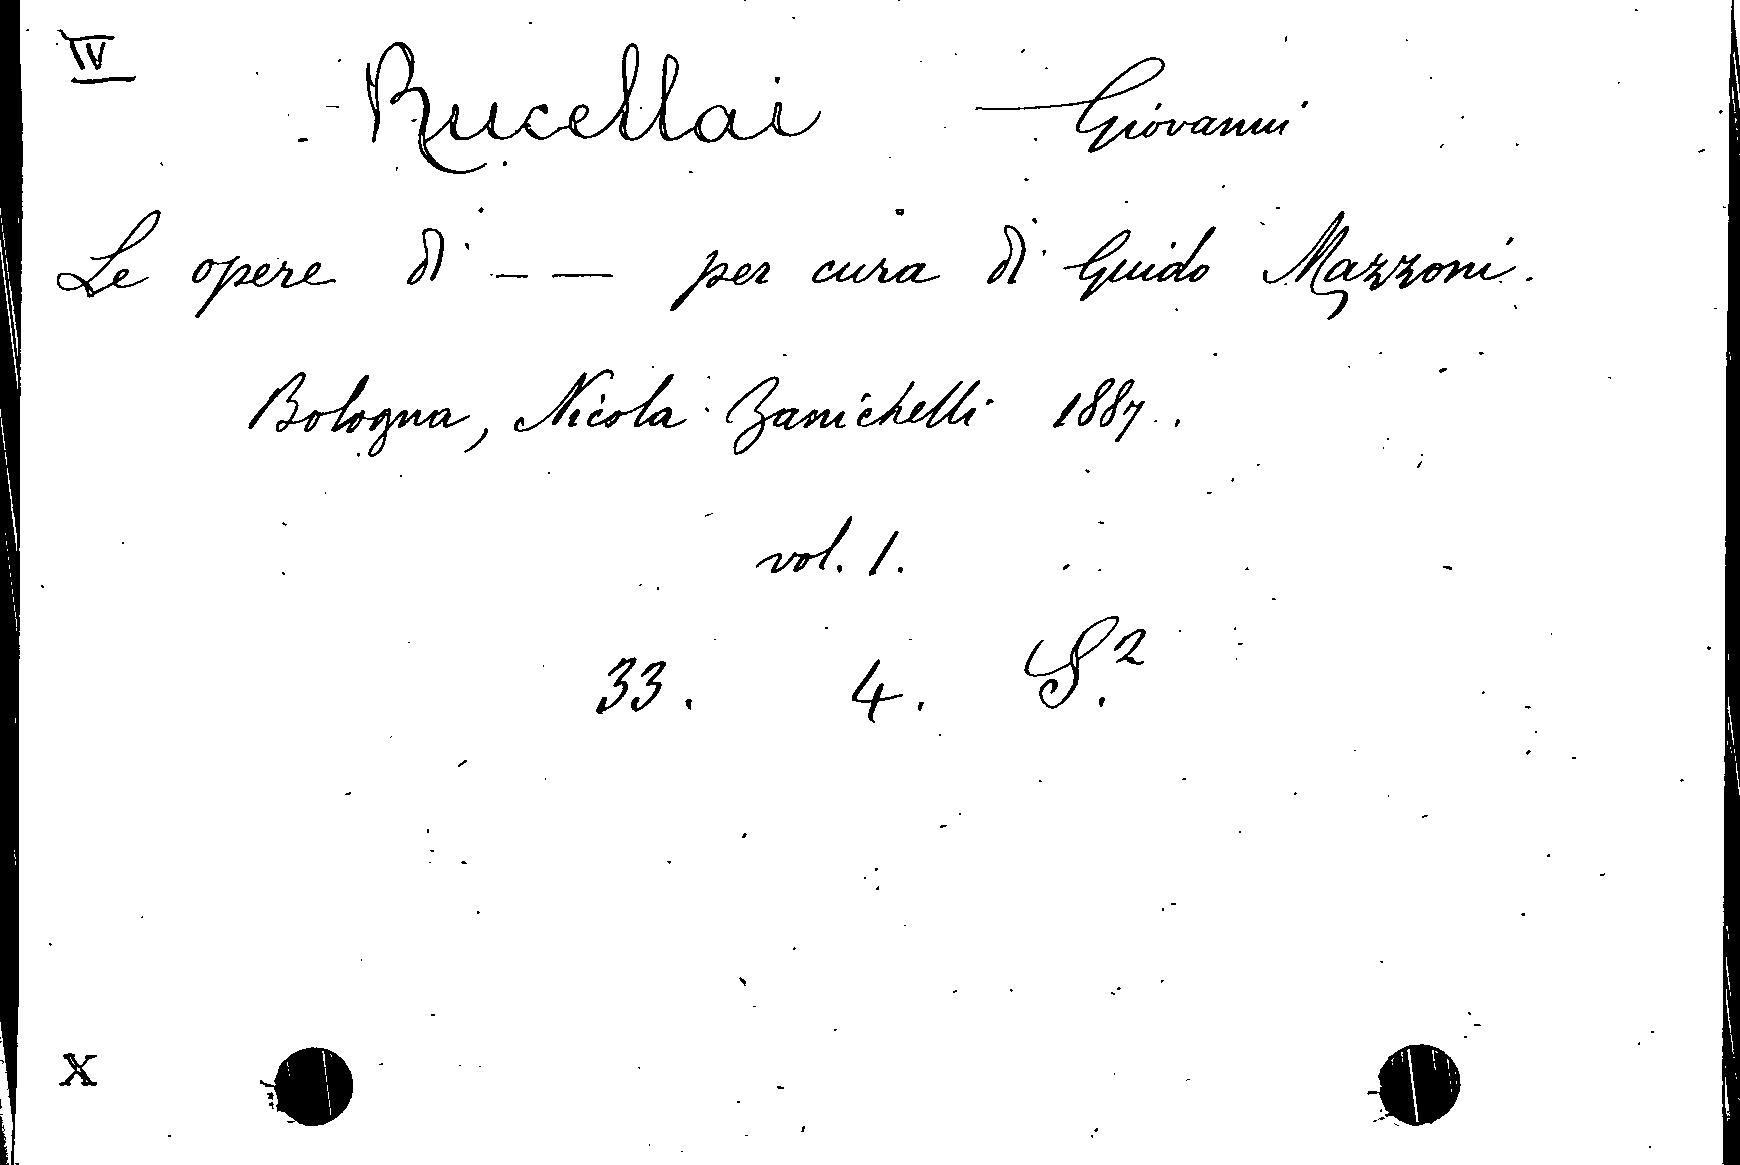 IV
Rucellai Giovanni
Le opere di — — per cura di Guido Mazzoni.
Bologna, Nicola Zanichelli 1887.
vol. 1.
33. 4. S.²
X